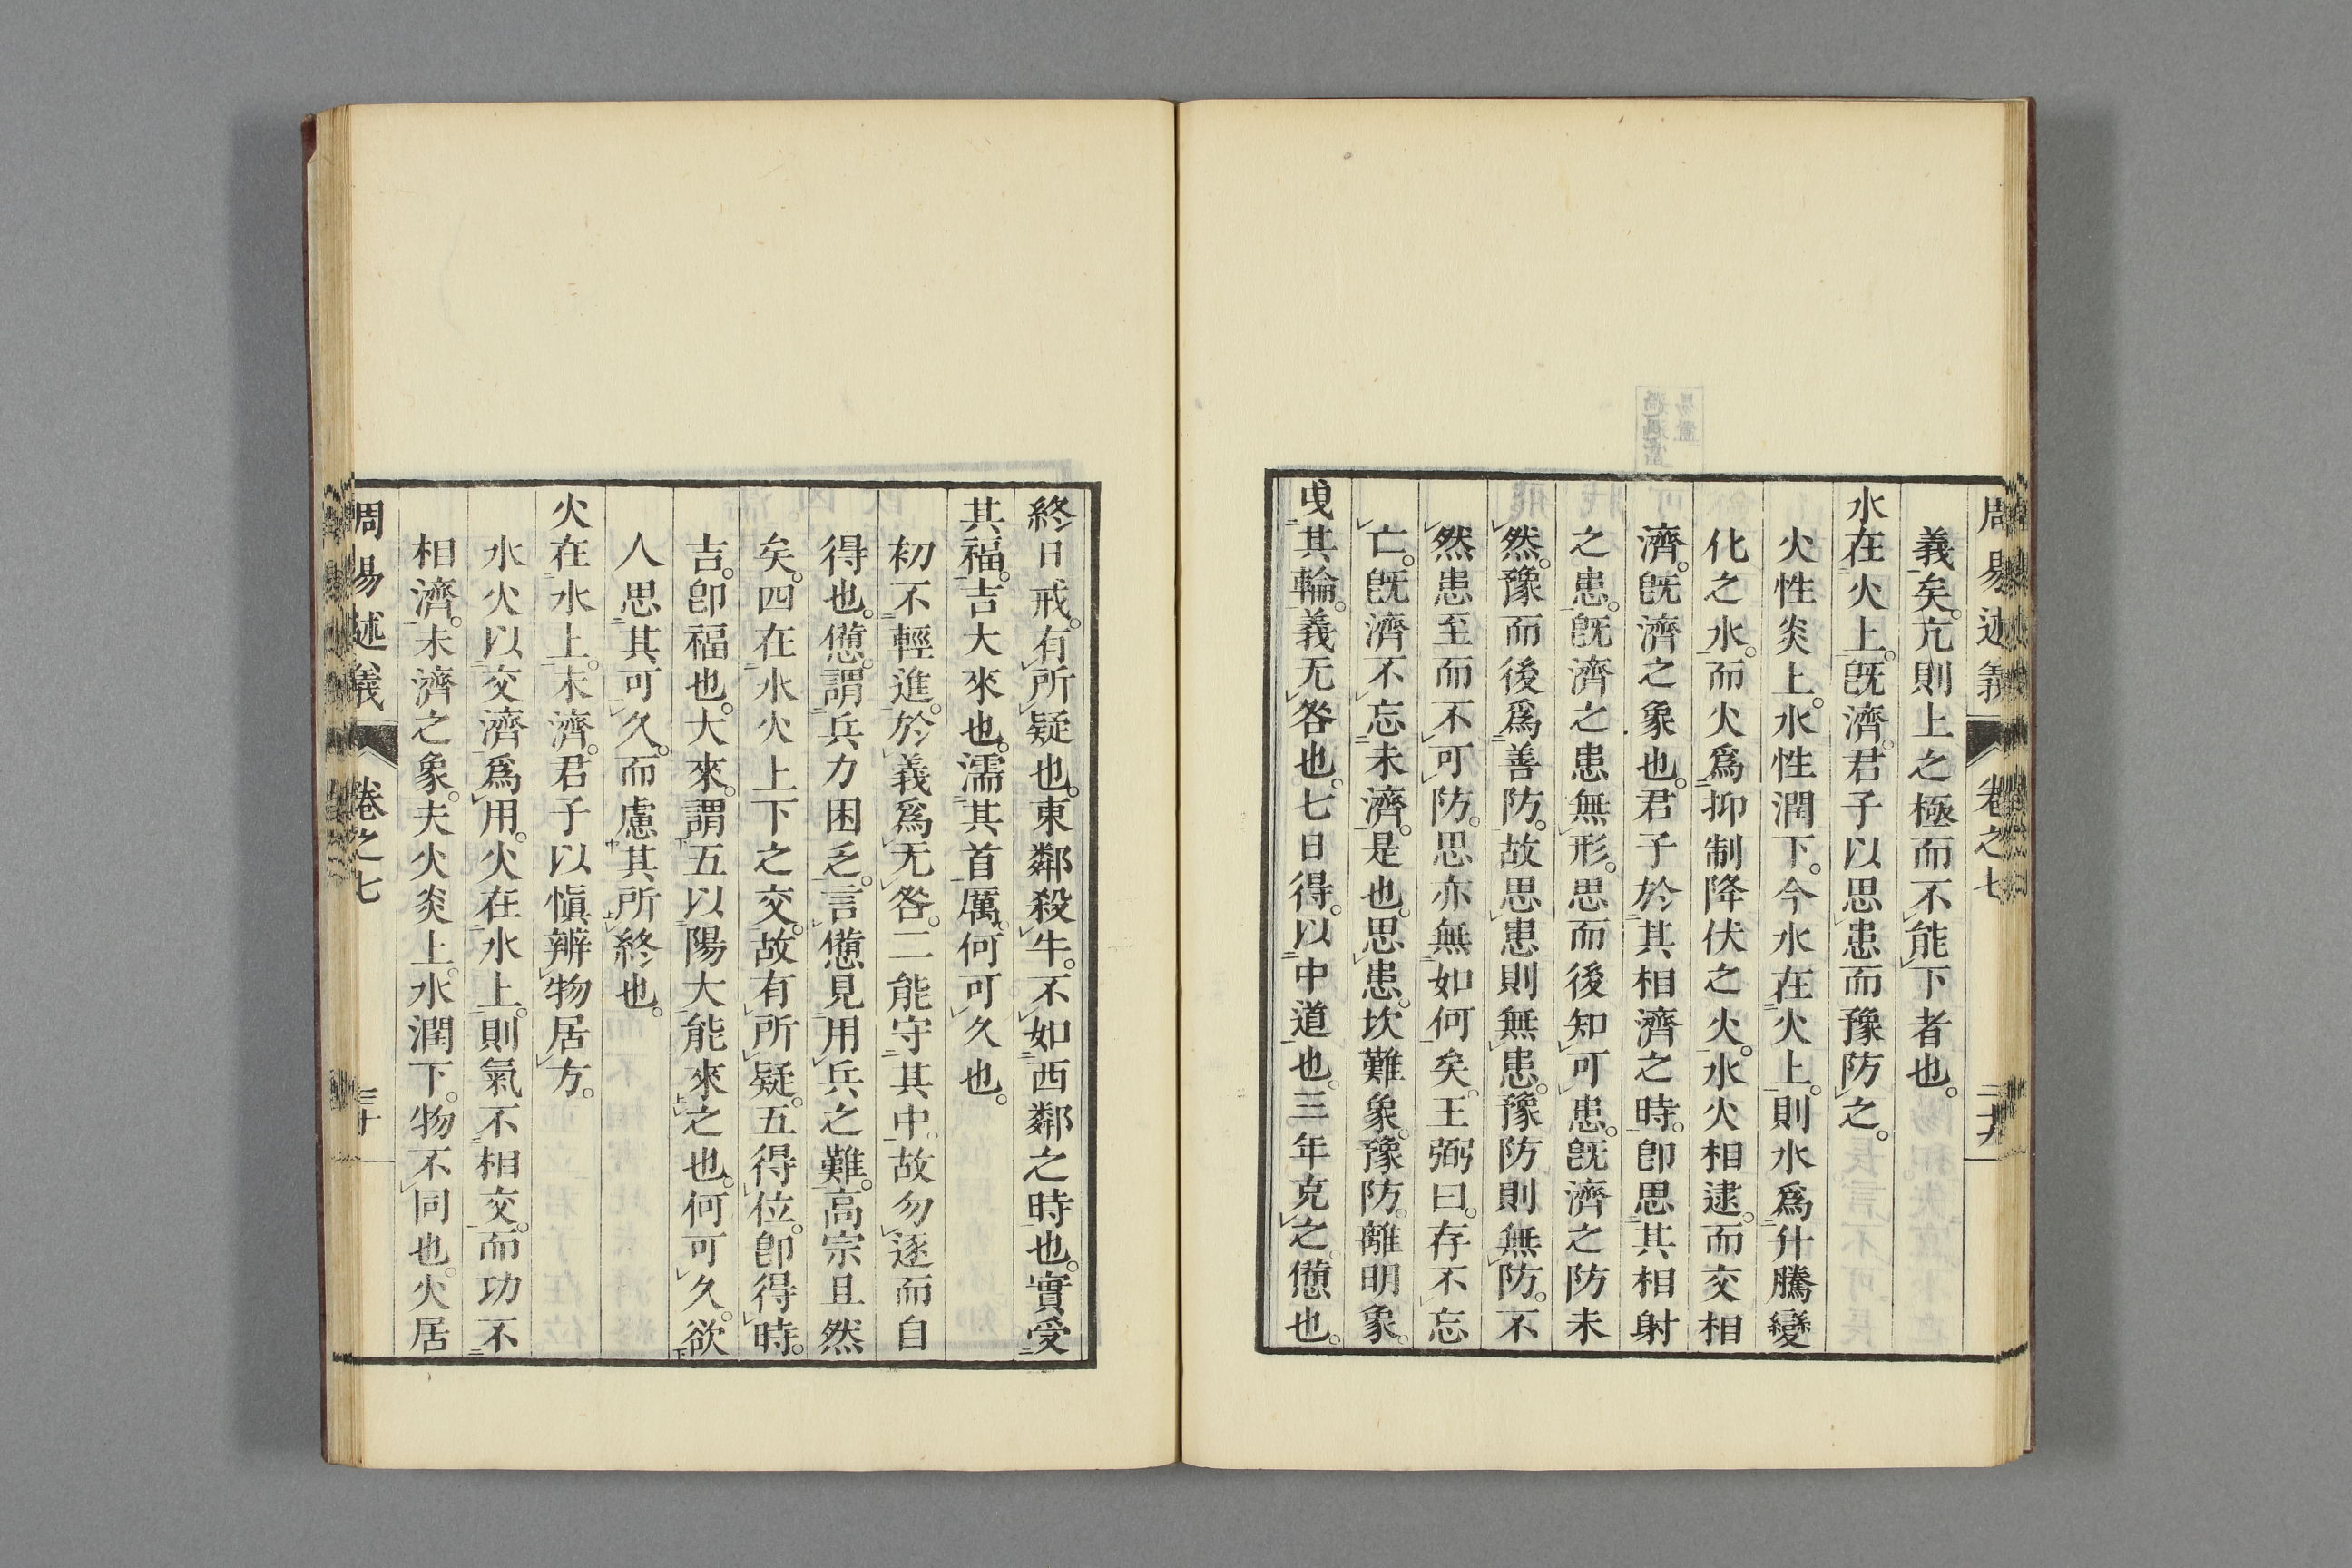 周易述義 卷之七 二十九
義矣。亢則上之極而不能下者也。
水在火上。旣濟。君子以思患而豫防之。
火性炎上。水性潤下。今水在火上。則水爲升騰變
化之水。而火爲抑制降伏之火。水火相逮。而交相
濟。旣濟之象也。君子於其相濟之時。卽思其相射
之患。旣濟之患無形。思而後知可患。旣濟之防未
然。豫而後爲善防。故思患則無患。豫防則無防。不
然患至而不可防。思亦無如何矣。王弼曰。存不忘
亡。旣濟不忘未濟。是也。思患。坎難象。豫防。離明象。
曳其輪。義无咎也。七日得。以中道也。三年克之。憊也。
終日戒。有所疑也。東鄰殺牛。不如西鄰之時也。實受
其福。吉大來也。濡其首厲。何可久也。
初不輕進。於義爲无咎。二能守其中。故勿逐而自
得也。憊。謂兵力困乏。言憊見用兵之難。高宗且然
矣。四在水火上下之交。故有所疑。五得位。卽得時。
吉。卽福也。大來。謂五以陽大能來之也。何可久。欲
人思其可久。而慮其所終也。
火在水上。未濟。君子以愼辨物居方。
水火以交濟爲用。火在水上。則氣不相交。而功不
相濟。未濟之象。夫火炎上。水潤下。物不同也。火居
周易述義 卷之七 三十